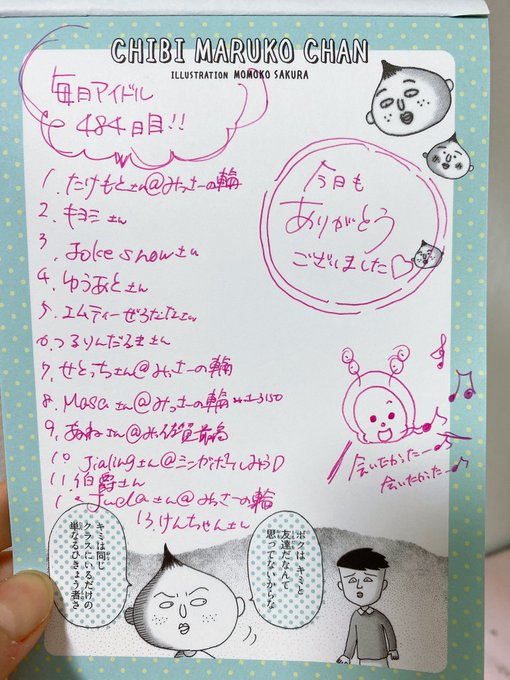 CHIBI MARUKO CHAN
ILLUSTRATION MOMOKO SAKURA
毎日アイドル
484日目!!
1. たけもとさん@みっさーの輪
2. キヨミさん
3. Joke snowさん
4. ゆうあとさん
5. エムティーぜろたたさん
6. つるりんだるまさん
7. せとっちさん@みっさーの輪
8. Masaさん@みっさーの輪
9. あねさん@
10 Jialingさん@
11 伯爵さん
さん@みっさーの輪
13 けんちゃんさん
今日も
ありがとう
ございました♡
会いたかったー♪
会いたかったー♪
ボクはキミと
友達だなんて
思ってないからな
キミは同じ
クラスにいるだけの
単なるひきょう者さ